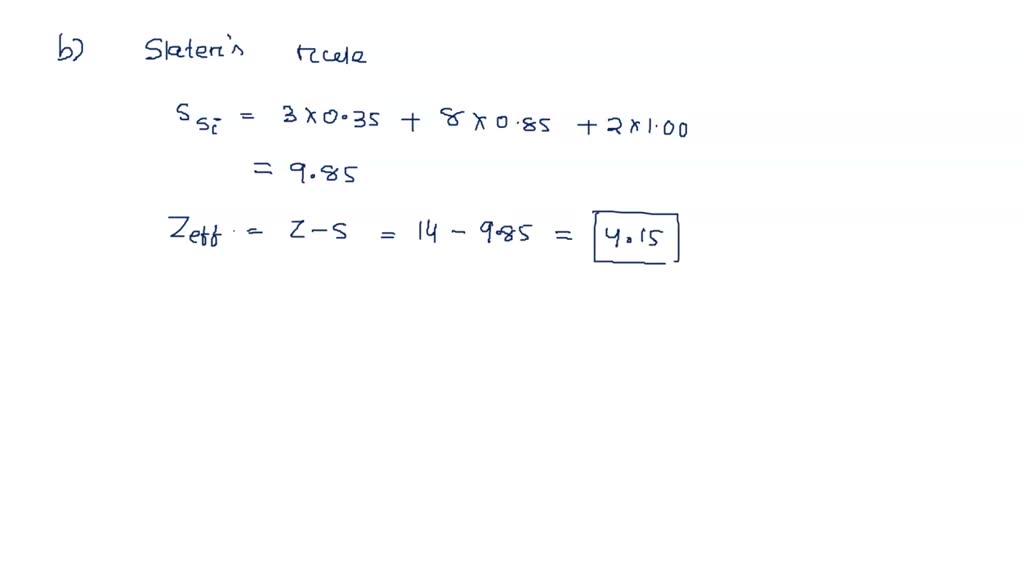 b) Slater's rule
S Si = 3 × 0.35 + 8 × 0.85 + 2 × 1.00
= 9.85
Zeff = Z - S = 14 - 9.85 = 4.15